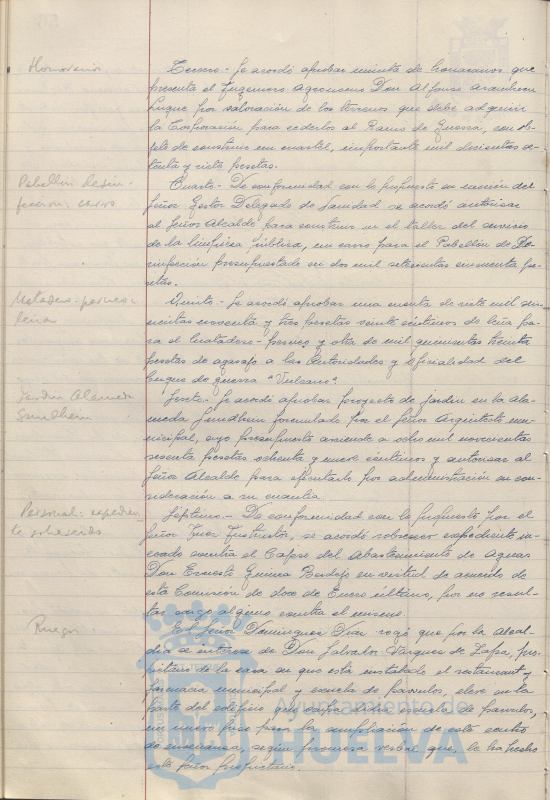 Honorarios
Tercero.- Se acordó aprobar minuta de honorarios que
presenta el Ingeniero Agrónomo Don Alfonso
Luque por valoración de los terrenos que debe adquirir
la Corporación para cederlos al Ramo de Guerra, con ob-
jeto de construir un cuartel, importante mil doscientas se-
tenta y siete pesetas.
Pabellón Desin-
fección: carro
Cuarto.- De conformidad con lo propuesto en moción del
Señor Gestor Delegado de Sanidad se acordó autorizar
al Señor Alcalde para construir en el taller del servicio
de la limpieza pública, un carro para el Pabellón de De-
sinfección presupuestado en dos mil setecientas cincuenta pe-
setas.
Matadero-porcino:
leña
Quinto.- Se acordó aprobar una cuenta de siete mil
noventa y tres pesetas veinte céntimos de leña pa-
ra el matadero-porcino y otra de mil quinientas treinta
pesetas de agasajo a las Autoridades y oficialidad del
buque de guerra "Vulcano".
Jardín Alameda
Sundheim
Sexto.- Se acordó aprobar proyecto de Jardín en la Ala-
meda Sundheim formulado por el Señor Arquitecto mu-
nicipal, cuyo presupuesto asciende a ocho mil novecientas
sesenta pesetas ochenta y nueve céntimos y autorizar al
Señor Alcalde para ejecutarlo por administración en con-
sideración a su cuantía.
Personal: expedien-
te sobreseido
Séptimo.- De conformidad con lo propuesto por el
Señor Juez Instructor, se acordó sobreseer expediente in-
coado contra el Capataz del Abastecimiento de Aguas
Don Ernesto Guinea en virtud de acuerdo de
esta Comisión de doce de Enero último, por no resul-
tar cargo alguno contra el mismo.
Ruegos
El Señor Domínguez rogó que por la Alcal-
día se interese de Don Salvador Vázquez de Zafra, pro-
pietario de la casa en que está instalado el restaurant y
farmacia municipal y escuela de párvulos, eleve en la
parte del edificio que ocupa dicha escuela de párvulos,
un nuevo piso para la ampliación de este centro
de enseñanza, según promesa verbal que, le ha hecho
este Señor propietario.
Ayuntamiento de
HUELVA